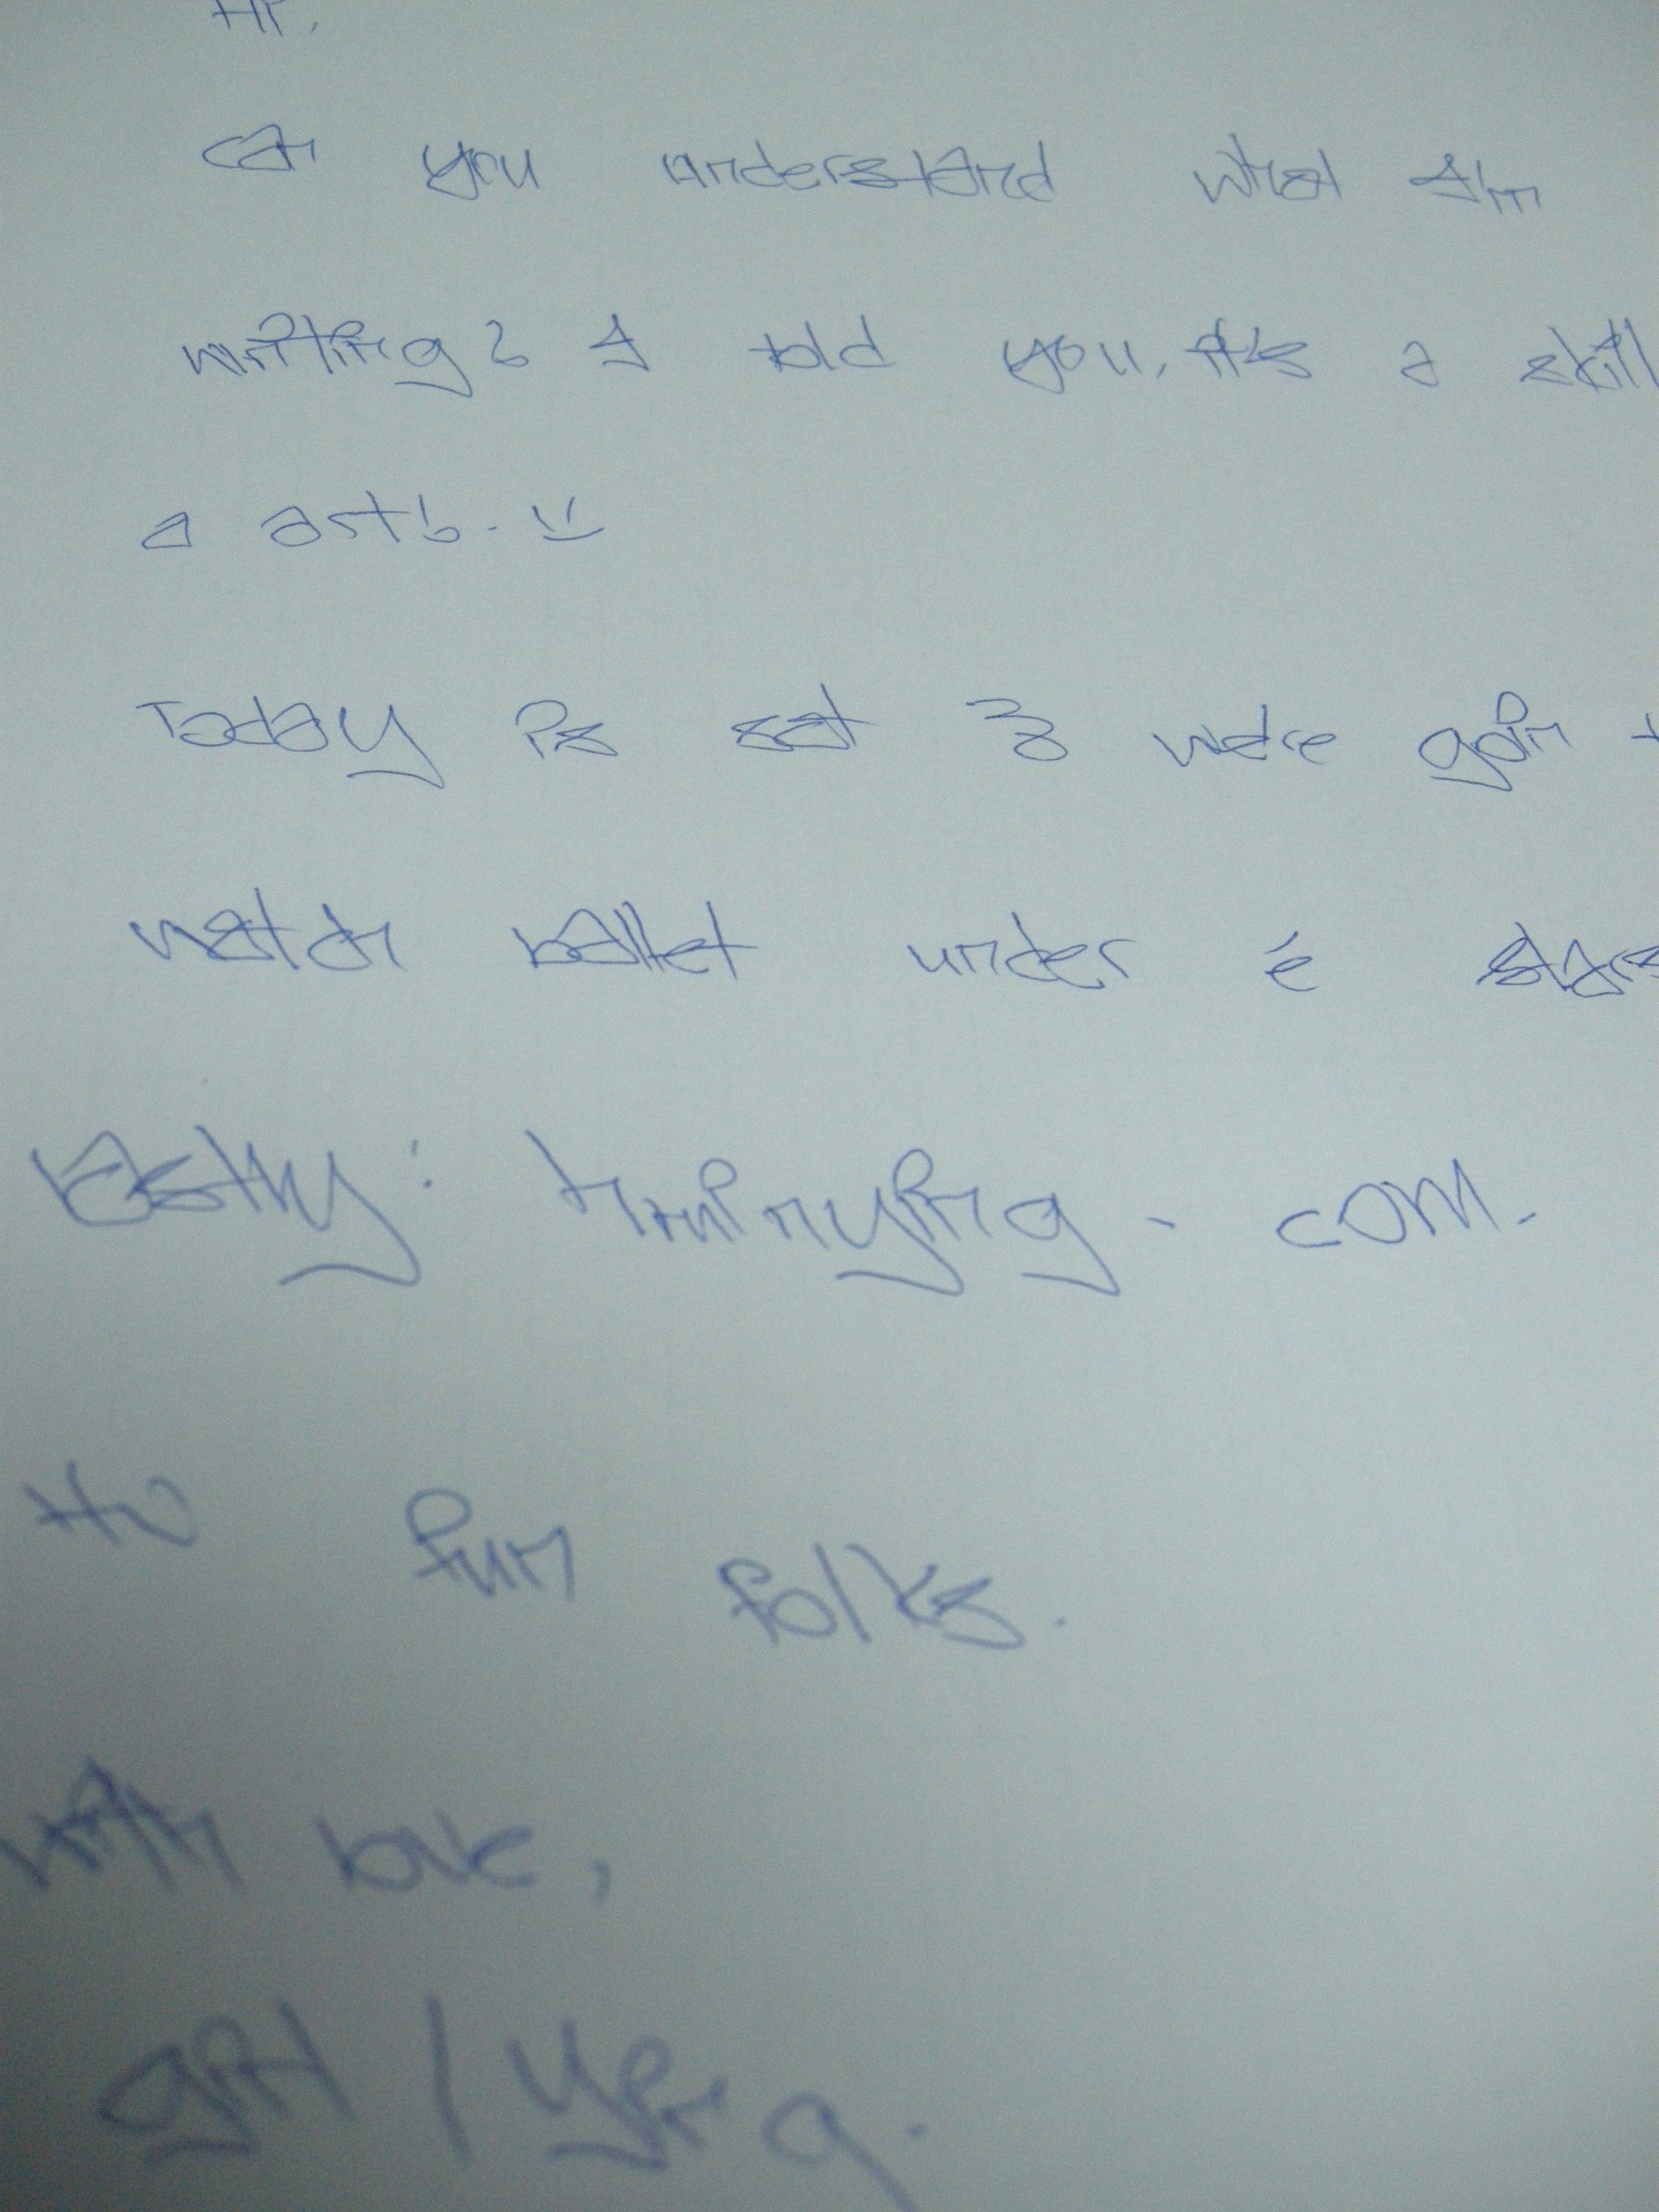 Hi,
can you understand what I'm
writing? I told you, it's a skill
a art b. =)
Today is sat & we're goin t
watch ballet under é stars
lastly: trminying.com.
fun folks.
with love,